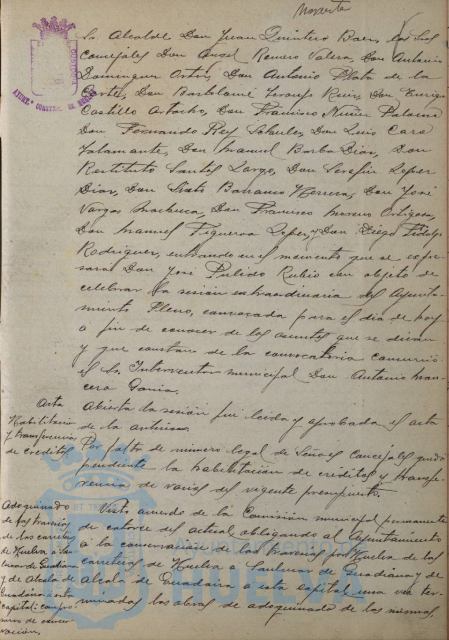 Sr. Alcalde Don Juan Quintero Baez, los Srs
Concejales Don Angel Romero Valera, Don Antonio
Dominguez Ortiz, Don Antonio Plata de la
Corte, Don Bartolomé Ruiz, Don Enrique
Castillo Don Francisco Nuñez Palacios
Don Fernando Rey Don Luis Caro
Don Manuel Barba Diaz, Don
Restituto Santos Largo, Don Serafin Lopez
Diaz, Don Sixto Barranco Herrera, Don José
Vargas Machuca, Don Francisco Moreno Ortigosa,
Don Manuel Figueroa Lopez, y Don Diego Fidalgo
Rodriguez, entrando en el momento que se expre-
sara Don José Pulido Rubio con objeto de
celebrar la sesión extraordinaria del Ayunta-
miento Pleno, convocada para el día de hoy
a fin de conocer de los asuntos que se dirán
y que constan de la convocatoria
el Sr Interventor municipal Don Antonio
Acta
Abierta la sesión fué leida y aprobada el acta
de la anterior.
Habilitación
y transferencia
de creditos
Por falta de número legal de Señores Concejales quedó
pendiente la habilitación de creditos y transfe-
rencia de varios del vigente presupuesto.
Adoquinado
de las travesías
de las carreteras
de Huelva a San-
lucar de Guadiana
y de Alcalá de
Guadaira a esta
capital: compro-
miso de conser-
vación.
Visto acuerdo de la Comisión municipal permanente
de catorce del actual obligando al Ayuntamiento
a la conservación de las travesías por Huelva de las
carreteras de Huelva a Sanlucar de Guadiana y de
Alcalá de Guadaira a esta capital una vez ter-
minadas las obras de adoquinado de las mismas,
HUELVA